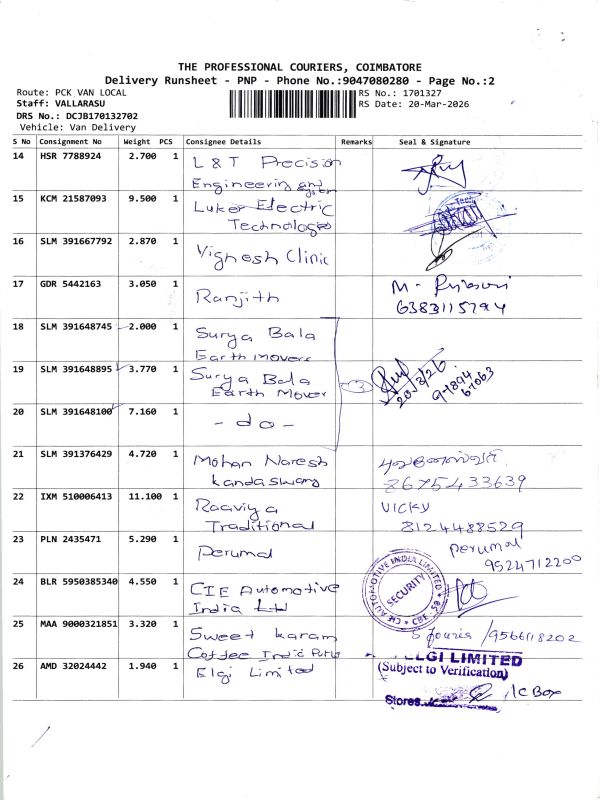 THE PROFESSIONAL COURIERS, COIMBATORE
Delivery Runsheet - PNP - Phone No.:9047080280 - Page No.:2
Route: PCK VAN LOCAL
RS No.: 1701327
Staff: VALLARASU
RS Date: 20-Mar-2026
DRS No.: DCJB170132702
Vehicle: Van Delivery
S No Consignment No Weight PCS Consignee Details Remarks Seal & Signature
14 HSR 7788924 2.700 1 L & T Precision
Engineering
15 KCM 21587093 9.500 1 Luker Electric
Technologies
16 SLM 391667792 2.870 1 Vignesh Clinic
17 GDR 5442163 3.050 1 Ranjith M-
6383115794
18 SLM 391648745 2.000 1 Surya Bala
Earth Movers
19 SLM 391648895 3.770 1 Surya Bala
Earth Mover 3 20/3/26 9-1894 67063
20 SLM 391648100 7.160 1 - do -
21 SLM 391376429 4.720 1 Mohan Naresh
Kandaswamy 8675433639
22 IXM 510006413 11.100 1 Raaviya VICKY
Traditional 8124488529
23 PLN 2435471 5.290 1 Perumal Perumal
9524712200
24 BLR 5950385340 4.550 1 CIE Automotive
India Ltd
CIE AUTOMOTIVE INDIA LIMITED
SECURITY
CBE-50
25 MAA 9000321851 3.320 1 Sweet Karam /9566118202
Coffee India
26 AMD 32024442 1.940 1 Elgi Limited
ELGI LIMITED
(Subject to Verification)
Stores 1C Box